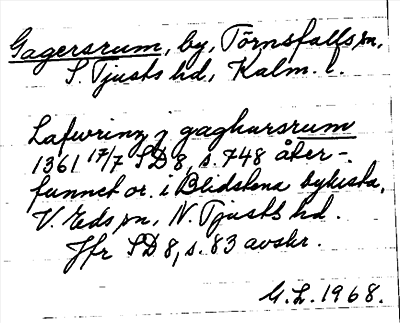 Gagersrum, by, Törnsfalls sn,
S. Tjusts hd, Kalm. l.
Lafwrinz j gaghursrum
1361 17/7 SD 8, s. 748 åter-
funnet or. i Blidstena bykista,
V. Eds sn, N. Tjusts hd.
Jfr SD 8, s. 83 avskr.
G. L. 1968.